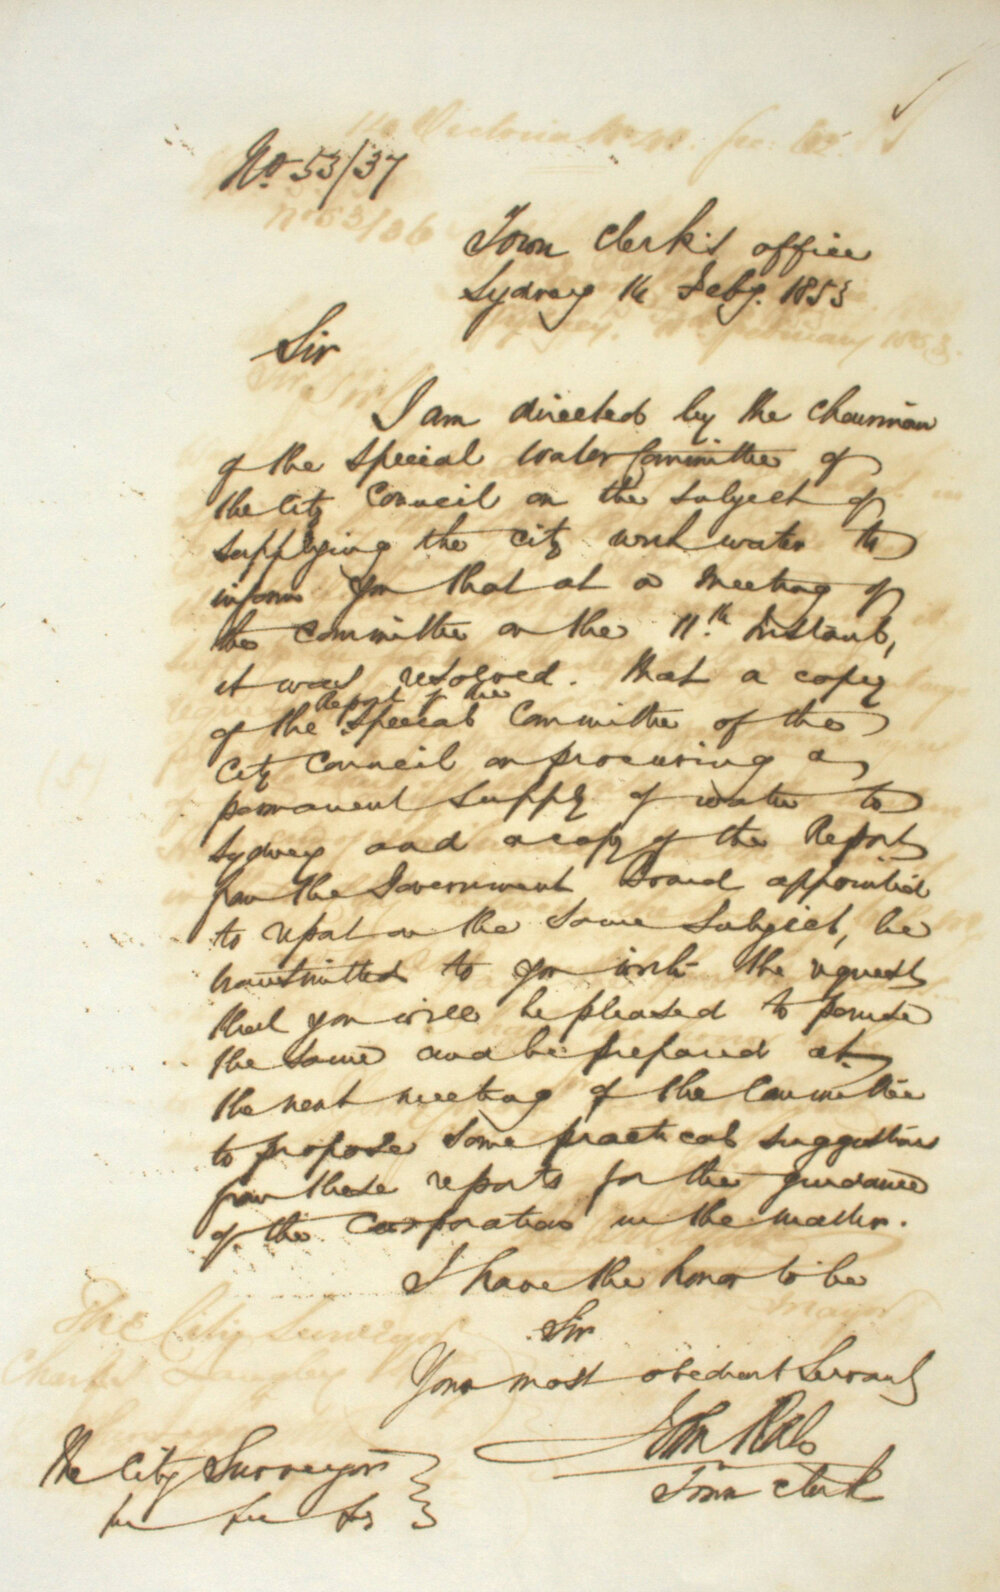 No 53/37
Town Clerk's office
Sydney 14 Feby. 1853
Sir
I am directed by the Chairman
of the Special Water Committee of
the City Council on the subject of
supplying the city with water to
inform you that at a meeting of
the Committee on the 11th Instant,
it was resolved. that a copy
of the Report of the Special Committee of the
City Council on procuring a
permanent supply of water to
Sydney and a copy of the Report
from the Government Board appointed
to report on the same subject, be
transmitted to you with the request
that you will be pleased to peruse
the same and be prepared at
the next meeting of the Committee
to propose some practical suggestions
from these reports for the guidance
of the Corporation in the matter.
I have the honor to be
Sir
Your most obedient Servant
John Rae
Town Clerk
The City Surveyor